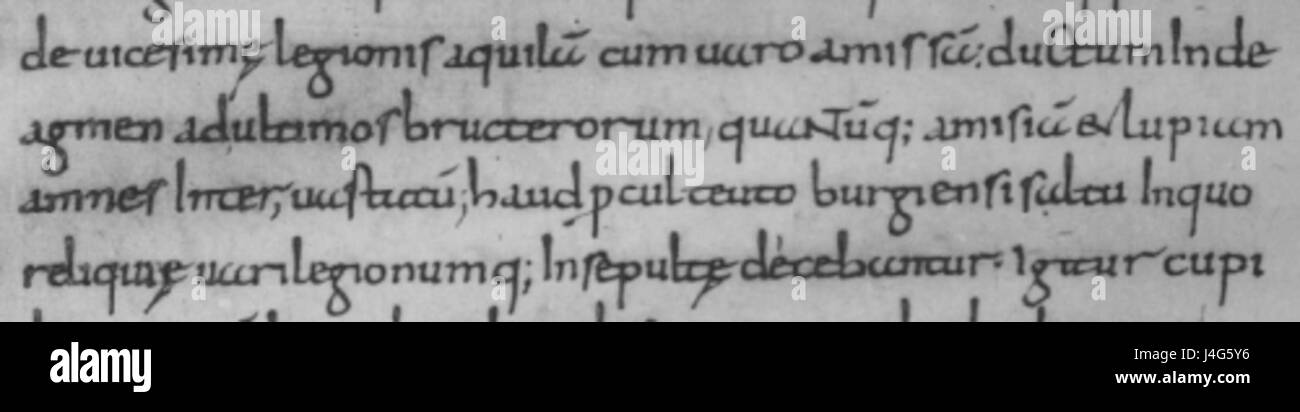 deuicesimę legionis aquilā cum uaro amissā; ductum Inde
agmen adultimos bructerorum, quantūq; amisiā & lupiam
amnes Inter; uastatū; haud pcul teuto burgiensi saltu Inquo
reliquię uari legionumq; Insepultę dècebantur. Igitur cupi
alamy stock photo
J4G5Y6
www.alamy.com